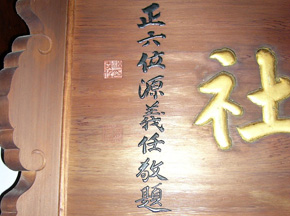 社
正六位源義任敬題